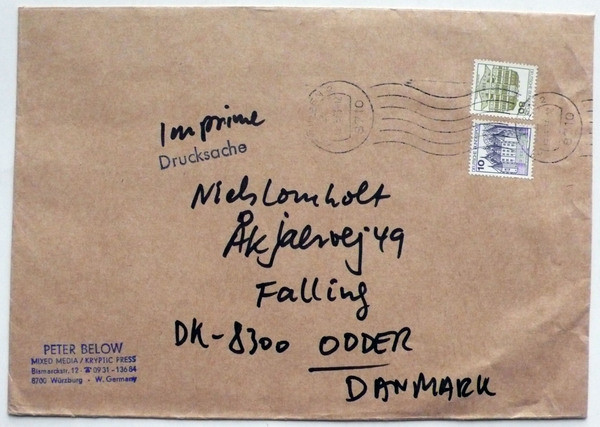 Imprime
Drucksache
Niels Lomholt
Åkjærvej 49
Falling
DK-8300 ODDER
DANMARK
PETER BELOW
MIXED MEDIA / KRYPTIC PRESS
Bismarckstr. 12 · ☎ 0931-13684
8700 Würzburg - W. Germany
80
10